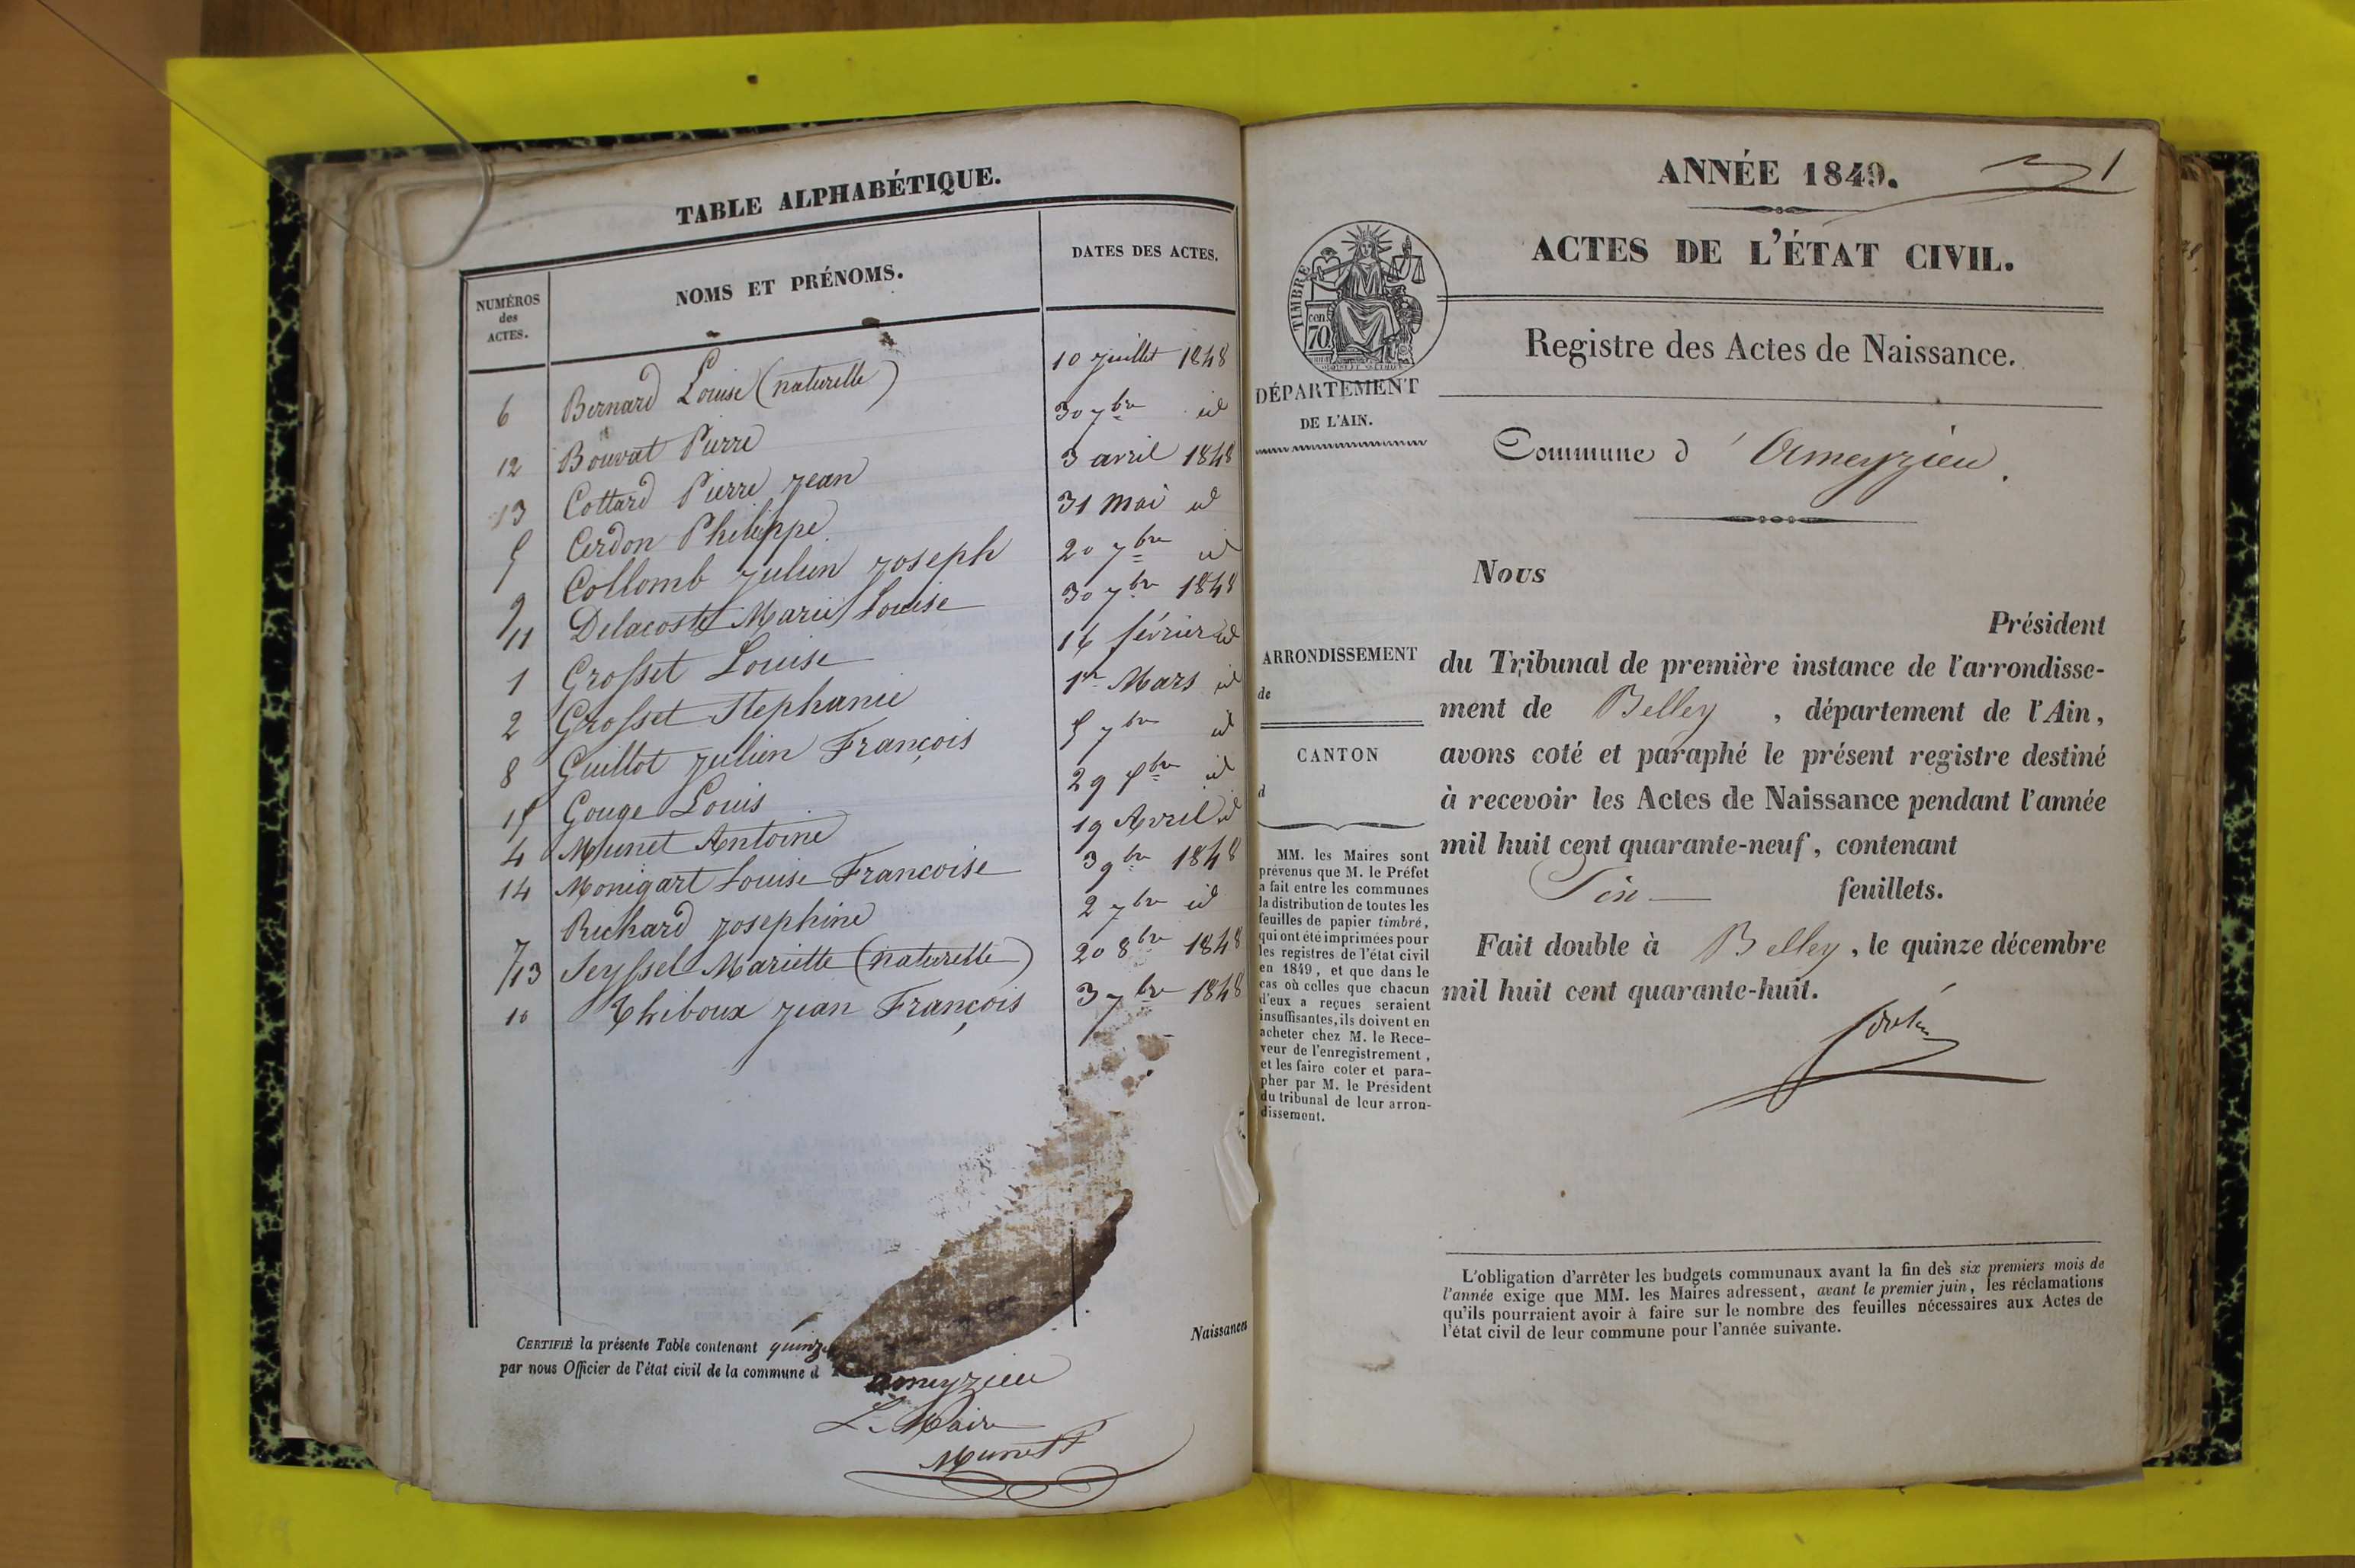 TABLE ALPHABÉTIQUE.
NUMÉROS des ACTES.
NOMS ET PRÉNOMS.
DATES DES ACTES.
6 Bernard Louise (naturelle) 10 juillet 1848
12 Bouvat Pierre 30 7bre id
13 Cottard Pierre jean 3 avril 1848
5 Cerdon Philippe 31 mai id
9 Collomb julien joseph 20 7bre id
11 Delacoste Marie Louise 30 7bre 1848
1 Grosset Louise 16 février id
2 Grosset Stephanie 1er Mars id
8 Guillot julien François 5 7bre id
15 Gouge Louis 29 id
4 Munet Antoine 19 Avril id
14 Monigart Louise Francoise 3 9bre 1848
7 Richard josephine 2 7bre id
13 Seyssel Mariette (naturelle) 20 8bre 1848
10 Thiboux jean François 3 7bre 1848
CERTIFIÉ la présente Table contenant quinze Naissances
par nous Officier de l'état civil de la commune d
ameyzieu
Le Maire
Munet
ANNÉE 1849.
1
ACTES DE L'ÉTAT CIVIL.
TIMBRE
70 cen.
Registre des Actes de Naissance.
DÉPARTEMENT
DE L'AIN.
Commune d'Ameyzieu.
Nous
Président
ARRONDISSEMENT
de
CANTON
d
du Tribunal de première instance de l'arrondisse-
ment de Belley, département de l'Ain,
avons coté et paraphé le présent registre destiné
à recevoir les Actes de Naissance pendant l'année
mil huit cent quarante-neuf, contenant
feuillets.
Fait double à Belley, le quinze décembre
mil huit cent quarante-huit.
MM. les Maires sont
prévenus que M. le Préfet
a fait entre les communes
la distribution de toutes les
feuilles de papier timbré,
qui ont été imprimées pour
les registres de l'état civil
en 1849, et que dans le
cas où celles que chacun
d'eux a reçues seraient
insuffisantes, ils doivent en
acheter chez M. le Rece-
veur de l'enregistrement,
et les faire coter et para-
pher par M. le Président
du tribunal de leur arron-
dissement.
L'obligation d'arrêter les budgets communaux avant la fin des six premiers mois de
l'année exige que MM. les Maires adressent, avant le premier juin, les réclamations
qu'ils pourraient avoir à faire sur le nombre des feuilles nécessaires aux Actes de
l'état civil de leur commune pour l'année suivante.